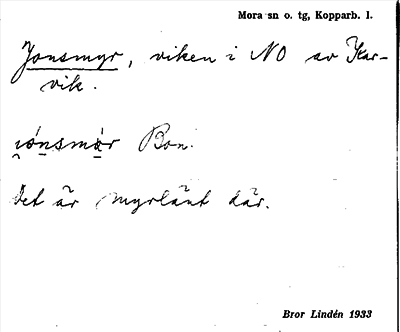 Mora sn o. tg, Kopparb. l.
Jonsmyr, viken i NO av Kar-
vik.
Bon.
Det är myrlänt där.
Bror Lindén 1933